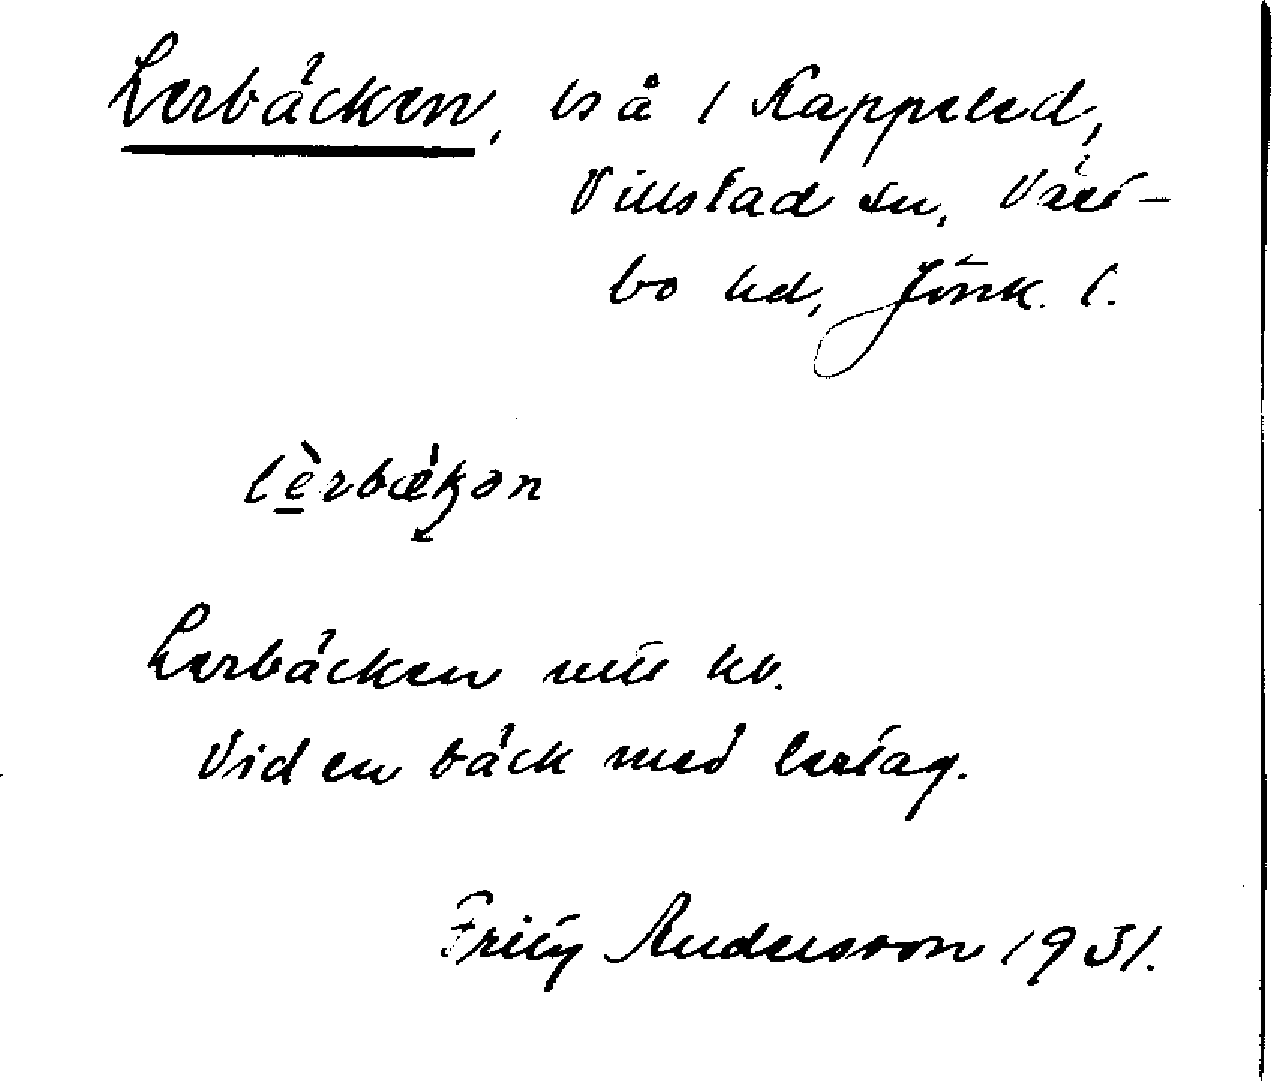 Lerbäcken, ls å 1 Kappeled,
Villstad sn, Väst-
bo hd, Jönk. l.
lèrbækən
Lerbäcken
Vid en bäck med lertag.
Fritz Andersson 1931.